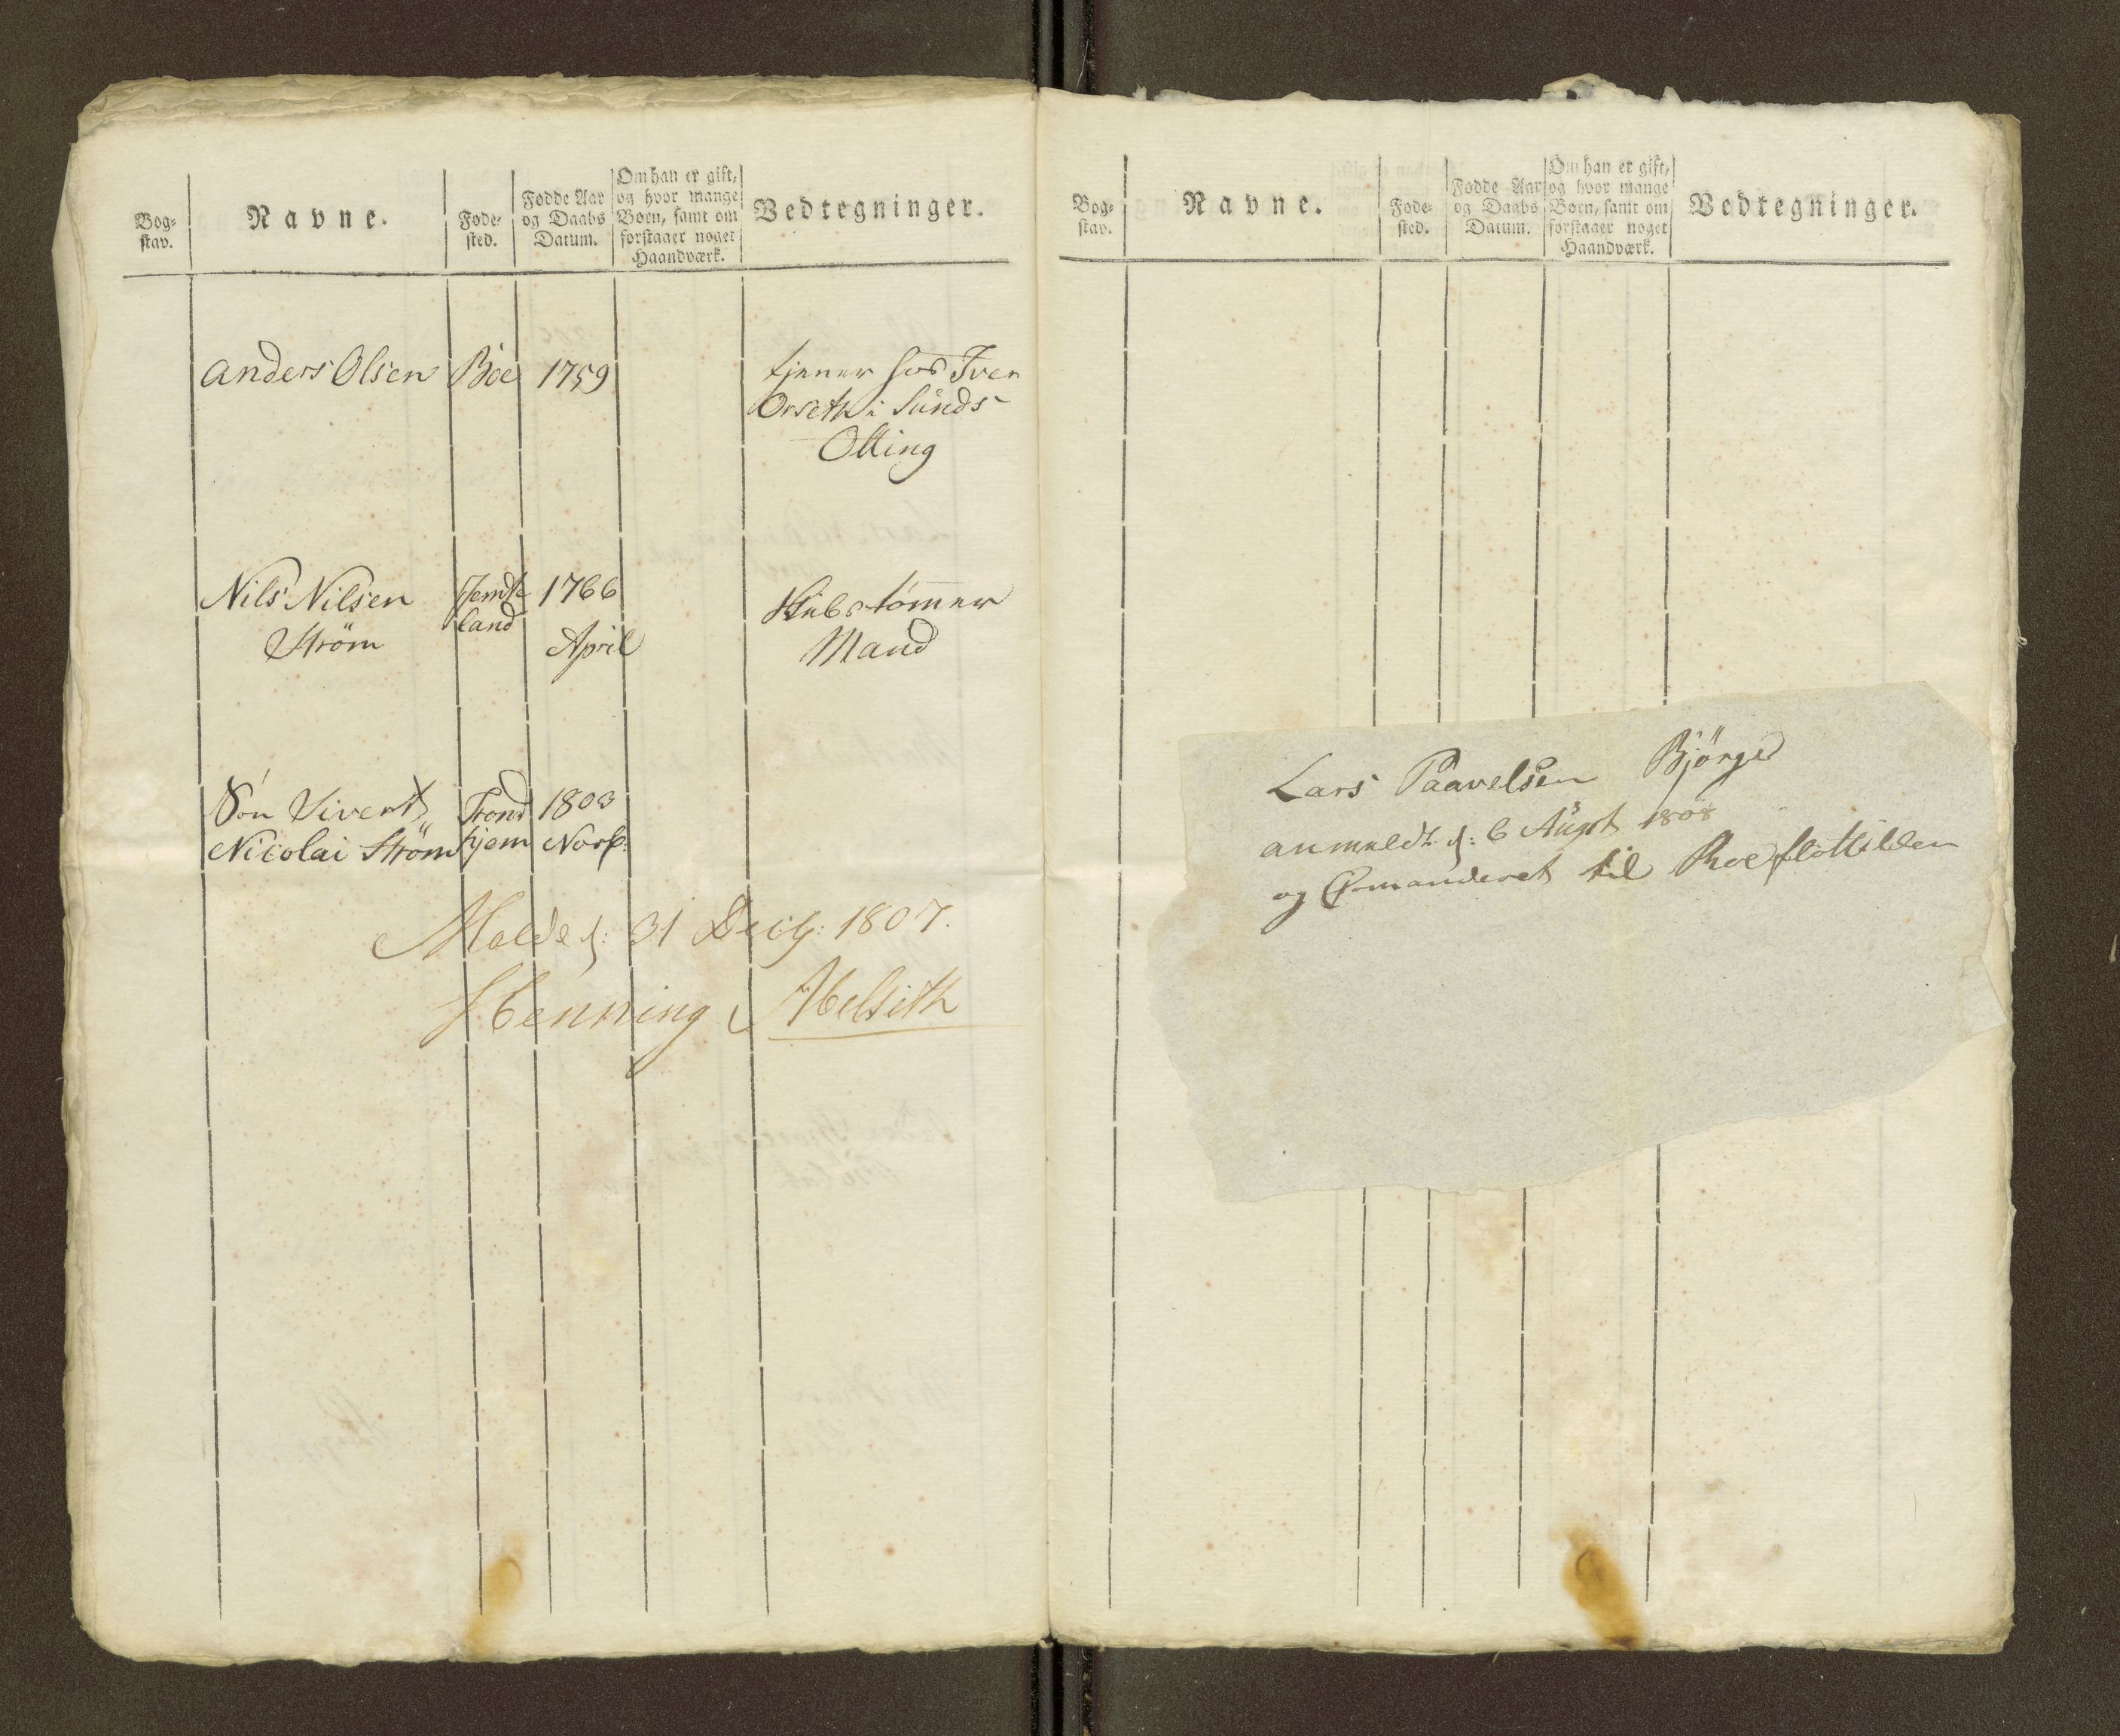 Bog-
stav.
Navne.
Føde-
sted.
Fødde Aar
og Daabs
Datum.
Om han er gift,
og hvor mange
Børn, samt om
forstaaer noget
Haandværk.
Vedtegninger.
Anders Olsen Böe 1759 tjener hos Iver
Orseth i Sunds
Otting
Nils Nilsen Jemte 1766 Skibstömmer
Ström land April Mand
Sön Sivert Trond 1803
Nicolai Ström hjem Novb:
Molde d: 31 Decb: 1807.
Henning Abelseth
Bog-
stav.
Navne.
Føde-
sted.
Fødde Aar
og Daabs
Datum.
Om han er gift,
og hvor mange
Børn, samt om
forstaaer noget
Haandværk.
Vedtegninger.
Lars Paavelsen Björge
anmeldt d: 6 Augst 1808
og Comanderet til Roeflottilden